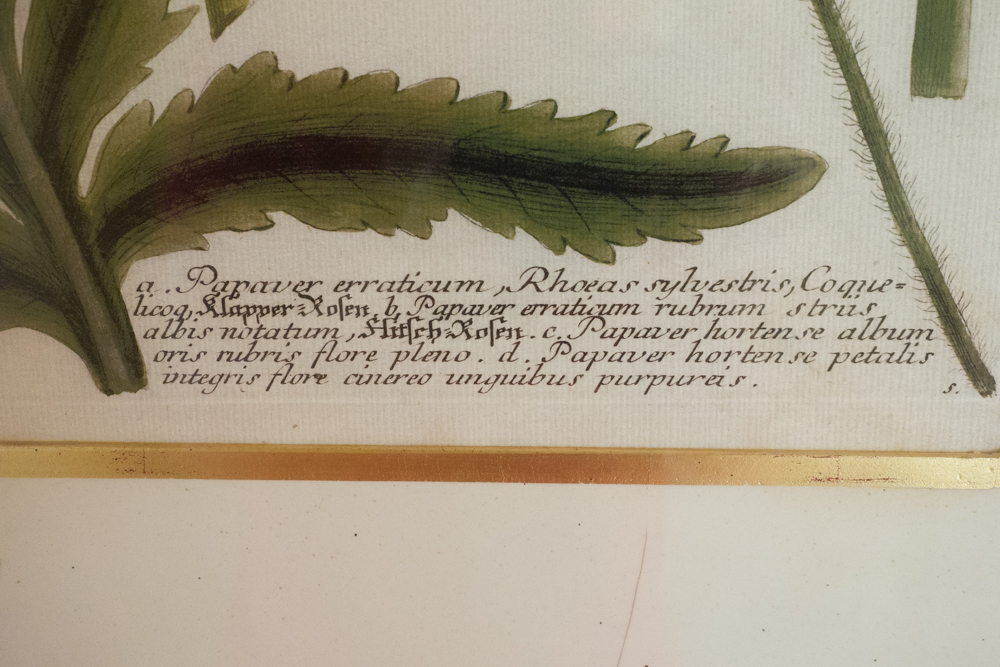 a. Papaver erraticum, Rhoeas sylvestris, Coque=
licoq, Klapper-Rosen. b. Papaver erraticum rubrum striis
albis notatum, Flitsch-Rosen. c. Papaver hortense album
oris rubris flore pleno. d. Papaver hortense petalis
integris flore cinereo unguibus purpureis.
s.